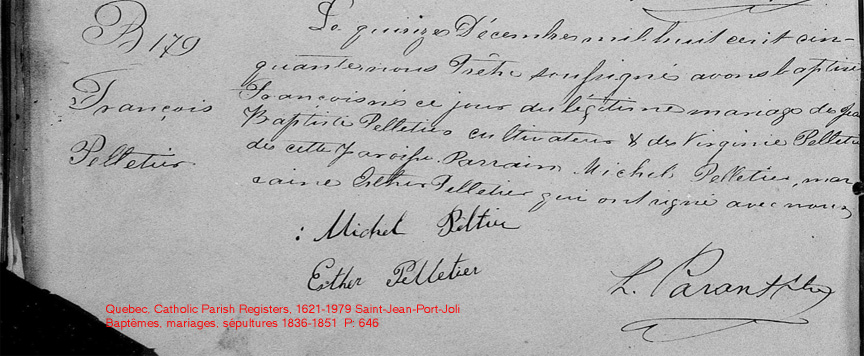 B 179
François
Pelletier
Le quinze Décembre mil huit cent cin-
quante nous Prêtre soussigné avons baptisé
François né ce jour du légitime mariage de Jean
Baptiste Pelletier cultivateur & de Virginie Pelletier
de cette Paroisse. Parrain Michel Pelletier, mar-
raine Esther Pelletier qui ont signé avec nous
: Michel Peltier
Esther Pelletier
L. Parant Ptre
Quebec, Catholic Parish Registers, 1621-1979 Saint-Jean-Port-Joli
Baptêmes, mariages, sépultures 1836-1851 P: 646